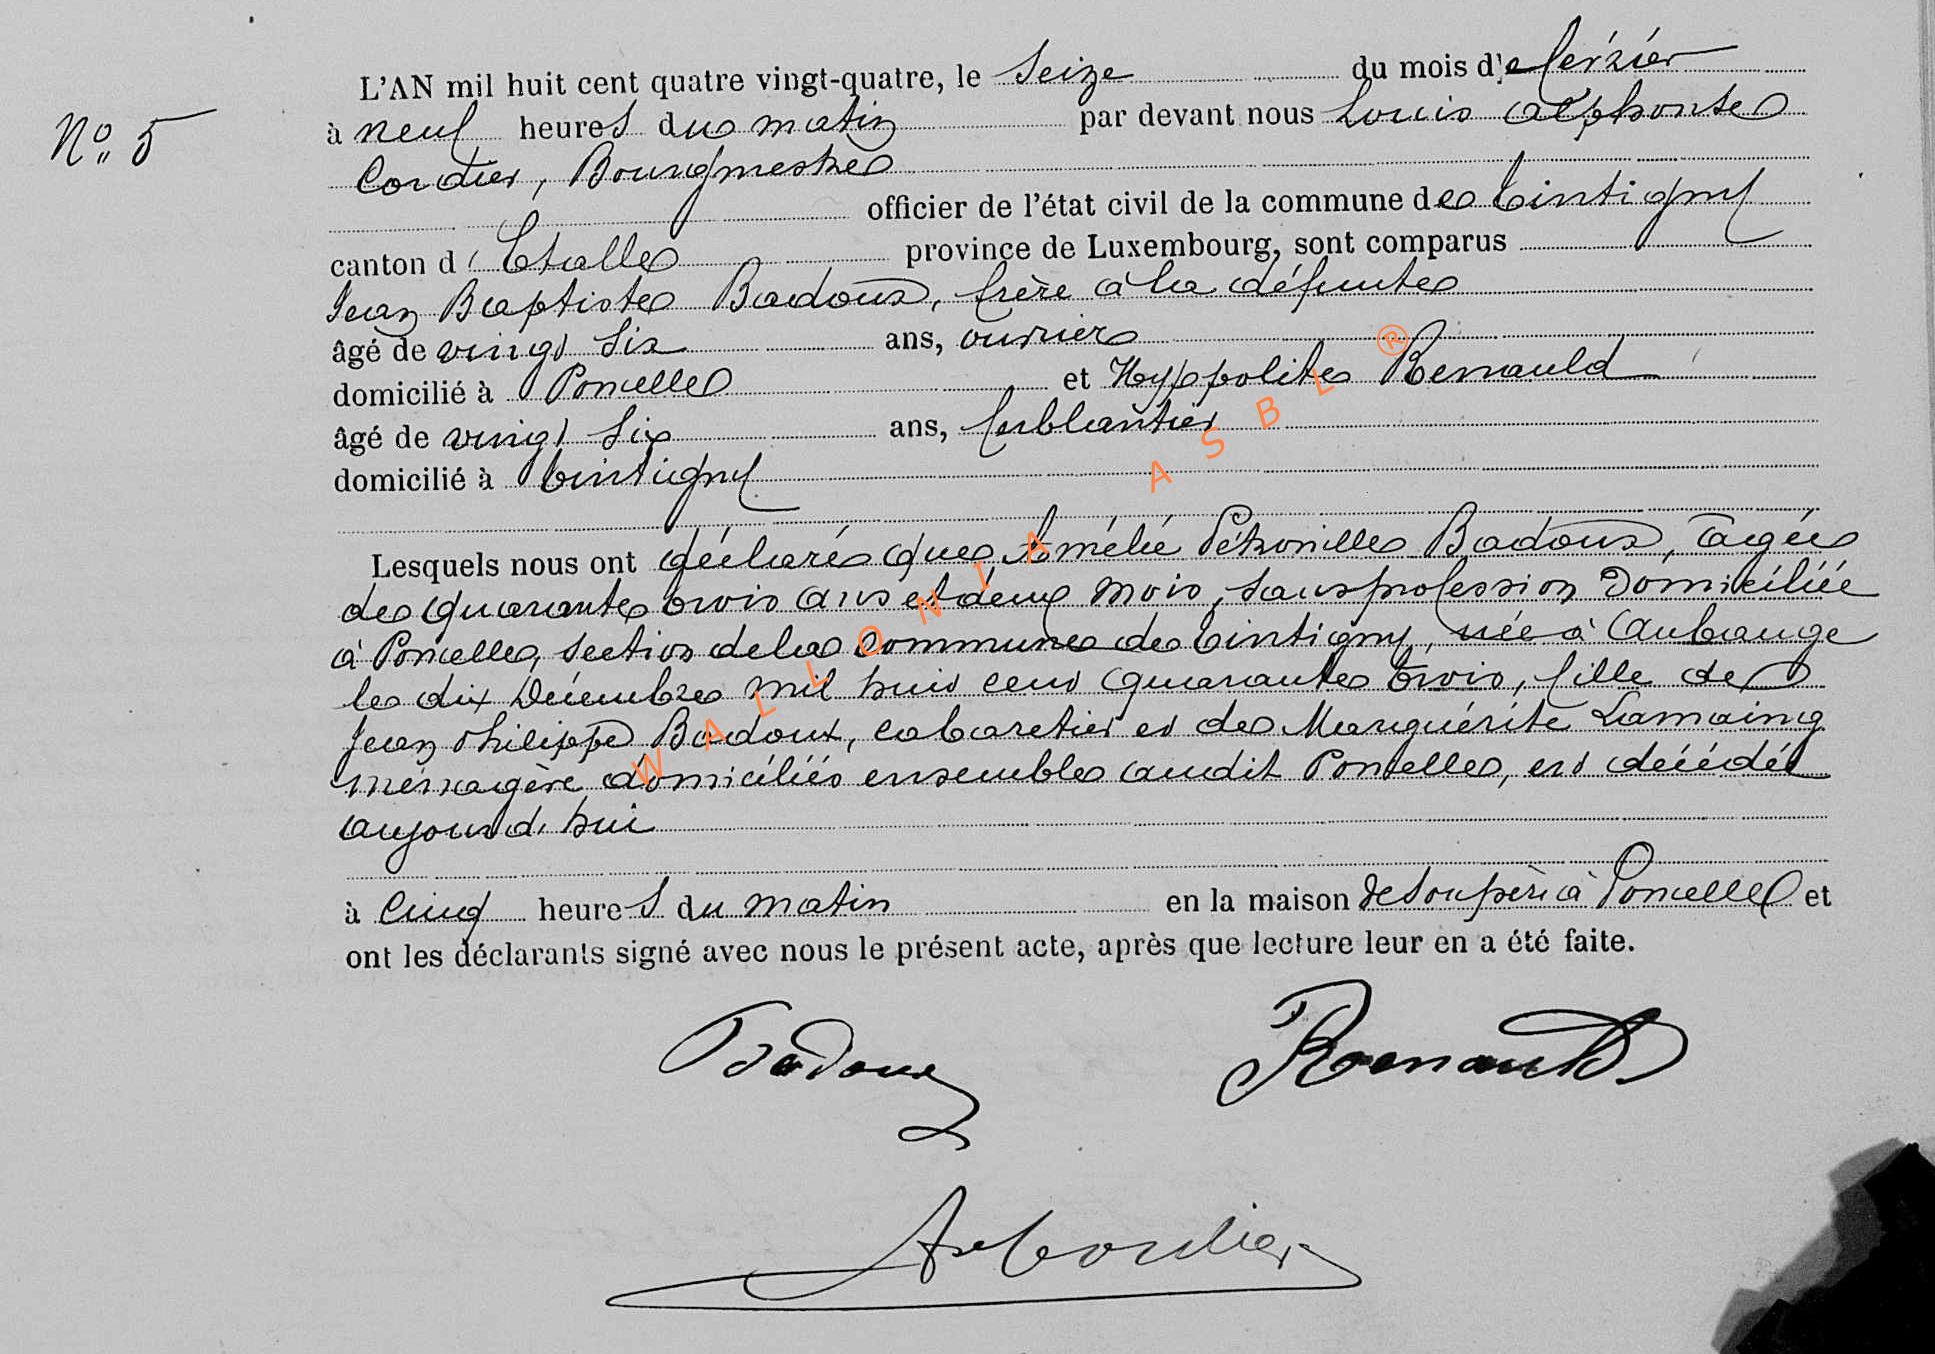 N° 5
L'AN mil huit cent quatre vingt-quatre, le Seize du mois de février
à neuf heures du matin par devant nous Louis Alphonse
Cordier, Bourgmestre
officier de l'état civil de la commune de Tintigny
canton d'Etalle province de Luxembourg, sont comparus
Jean Baptiste Badoux, frère à la défunte
âgé de vingt six ans, ouvrier
domicilié à Poncelle et Hyppolite Renauld
âgé de vingt six ans, ferblantier
domicilié à Tintigny
Lesquels nous ont déclaré que Amélie Pétronille Badoux, agée
de quarante trois ans et deux mois, sans profession domiciliée
à Poncelle, section de la commune de Tintigny, née à Aubange
le dix Décembre mil huit cent quarante trois, fille de
Jean Philippe Badoux, cabaretier et de Marguérite Lamaing
ménagère domiciliés ensemble audit Poncelle, est décédée
aujourd'hui
à Cinq heures du matin en la maison de son père à Poncelle et
ont les déclarants signé avec nous le présent acte, après que lecture leur en a été faite.
Badoux Renauld
A Cordier
WALLONIA ASBL ®